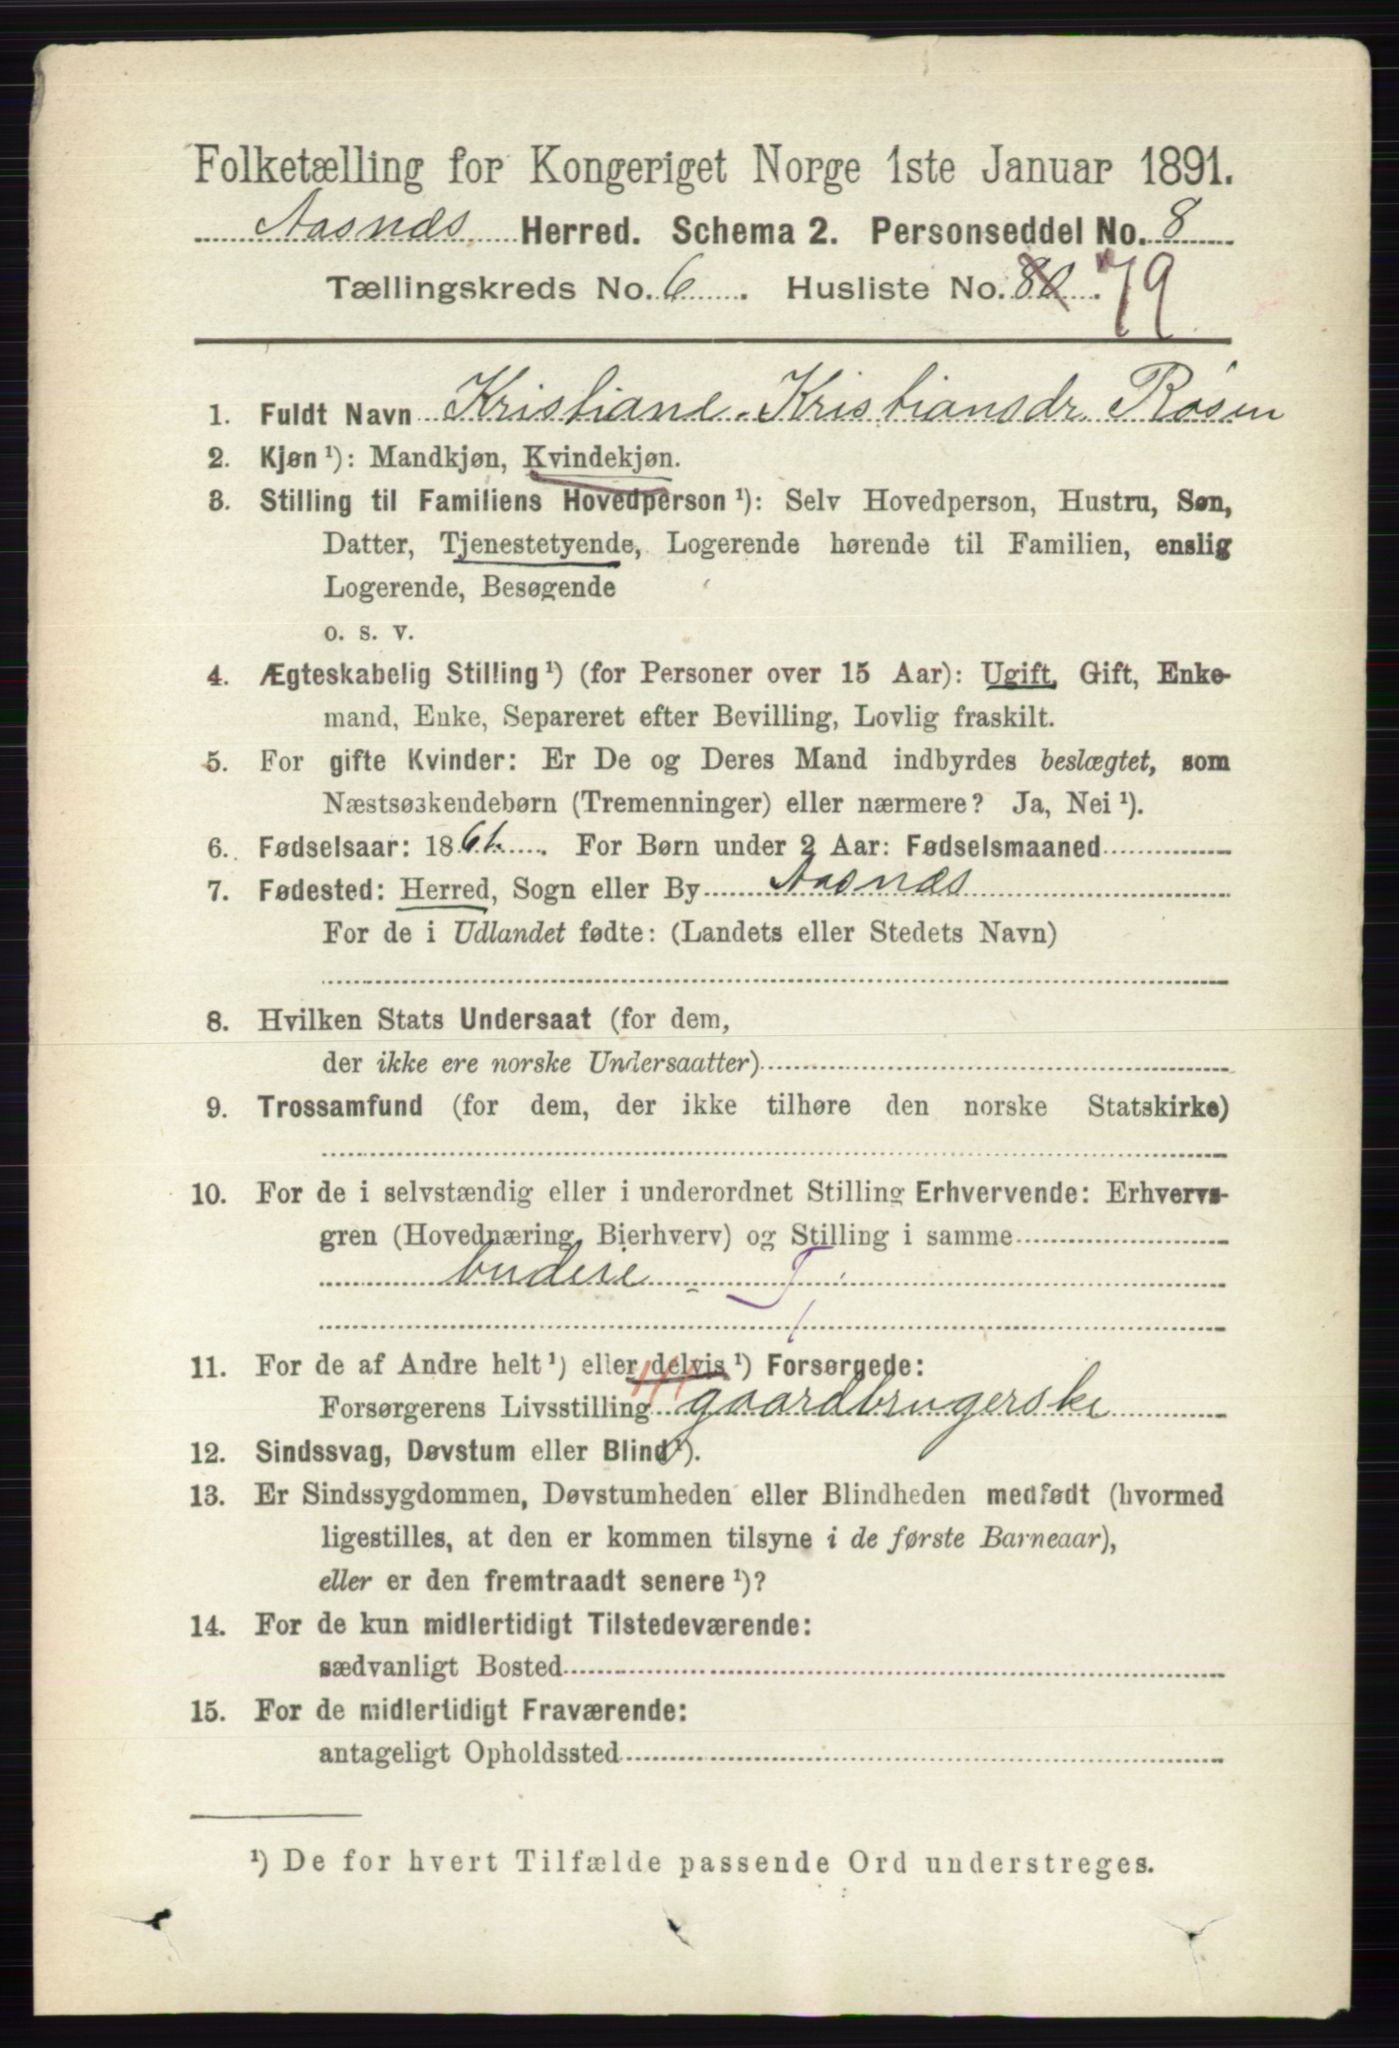 Folketælling for Kongeriget Norge 1ste Januar 1891.
Aasnæs Herred. Schema 2. Personseddel No. 8
Tællingskreds No. 6. Husliste No. 80. 79
1. Fuldt Navn Kristiane Kristiansdr Rosen
2. Kjøn ¹): Mandkjøn, Kvindekjøn.
3. Stilling til Familiens Hovedperson ¹): Selv Hovedperson, Hustru, Søn,
Datter, Tjenestetyende, Logerende hørende til Familien, enslig
Logerende, Besøgende
o. s. v.
4. Ægteskabelig Stilling ¹) (for Personer over 15 Aar): Ugift, Gift, Enke-
mand, Enke, Separeret efter Bevilling, Lovlig fraskilt.
5. For gifte Kvinder: Er De og Deres Mand indbyrdes beslægtet, som
Næstsøskendebørn (Tremenninger) eller nærmere? Ja, Nei ¹).
6. Fødselsaar: 18 . For Børn under 2 Aar: Fødselsmaaned
7. Fødested: Herred, Sogn eller By Aasnæs
For de i Udlandet fødte: (Landets eller Stedets Navn)
8. Hvilken Stats Undersaat (for dem,
der ikke ere norske Undersaatter)
9. Trossamfund (for dem, der ikke tilhøre den norske Statskirke)
10. For de i selvstændig eller i underordnet Stilling Erhvervende: Erhvervs-
gren (Hovednæring, Bierhverv) og Stilling i samme
budeie T
11. For de af Andre helt ¹) eller delvis ¹) Forsørgede:
Forsørgerens Livsstilling gaardbrugerske
12. Sindssvag, Døvstum eller Blind ¹).
13. Er Sindssygdommen, Døvstumheden eller Blindheden medfødt (hvormed
ligestilles, at den er kommen tilsyne i de første Barneaar),
eller er den fremtraadt senere ¹)?
14. For de kun midlertidigt Tilstedeværende:
sædvanligt Bosted
15. For de midlertidigt Fraværende:
antageligt Opholdssted
¹) De for hvert Tilfælde passende Ord understreges.